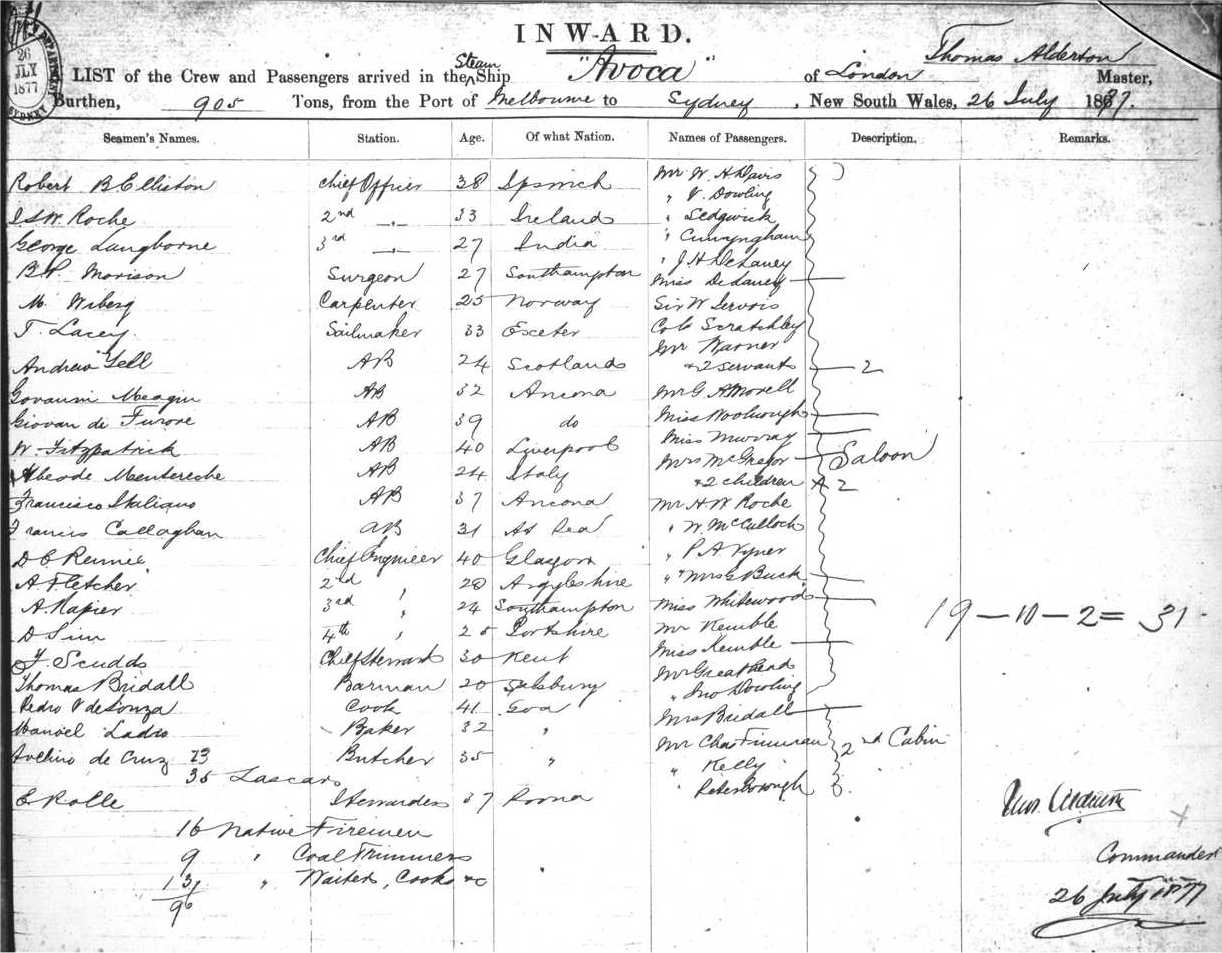 26
JLY
1877
SYDNEY
INWARD.
LIST of the Crew and Passengers arrived in the Steam Ship "Avoca" of London Thomas Alderton Master,
Burthen, 905 Tons, from the Port of Melbourne to Sydney, New South Wales, 26 July 1877.
Seamen's Names. Station. Age. Of what Nation. Names of Passengers. Description. Remarks.
Robert B Elliston Chief Officer 38 Ipswich Mr W. H Davis
" V. Dowling
Roche 2nd " 33 Ireland " Sedgwick
George Langborne 3rd " 27 India " Cunyngham
" J H DeLaney
Morison Surgeon 27 Southampton Miss DeLaney
M. Wiberg Carpenter 25 Norway Sir W Jervois
T. Lacey Sailmaker 33 Exeter Col Scratchley
Mr Warner
Andrew Gell AB 24 Scotland & 2 servants 2
AB 32 Ancona Mr G. A Morell
Giovan de Furore AB 39 do Miss Woolnough
W Fitzpatrick AB 40 Liverpool Miss Murray
AB 24 Italy Mrs McGregor Saloon
& 2 children 2
Francisco Italiano AB 37 Ancona Mr H. W. Roche
Francis Callaghan AB 31 At Sea " W. McCulloch
D C Rennie Chief Engineer 40 Glasgow " P A
A. Fletcher 2nd " 28 Argyleshire " & Mrs G Buck
A. Napier 3rd " 24 Southampton Miss Whitewood
19 - 10 - 2 = 31
D Sim 4th " 25 Mr Kemble
Miss Kemble
F. Scudds Chief Steward 30 Kent Mr Greathead
Thomas Bridall Barman 20 Salsbury " Jno Dowling
Pedro V de Souza Cook 41 Goa Mrs Bridall
Manoel Baker 32 "
Mr Chas 2nd Cabin
Avelino de Cruz 23 Butcher 35 " " Kelly
35 Lascars
E Rolle Stewardess 37 Poona " Peterborough 3.
16 Native Firemen
9 " Coal Trimmers
13 " Waiters, Cooks &c
96
Thos. Alderton
Commander
26 July 1877